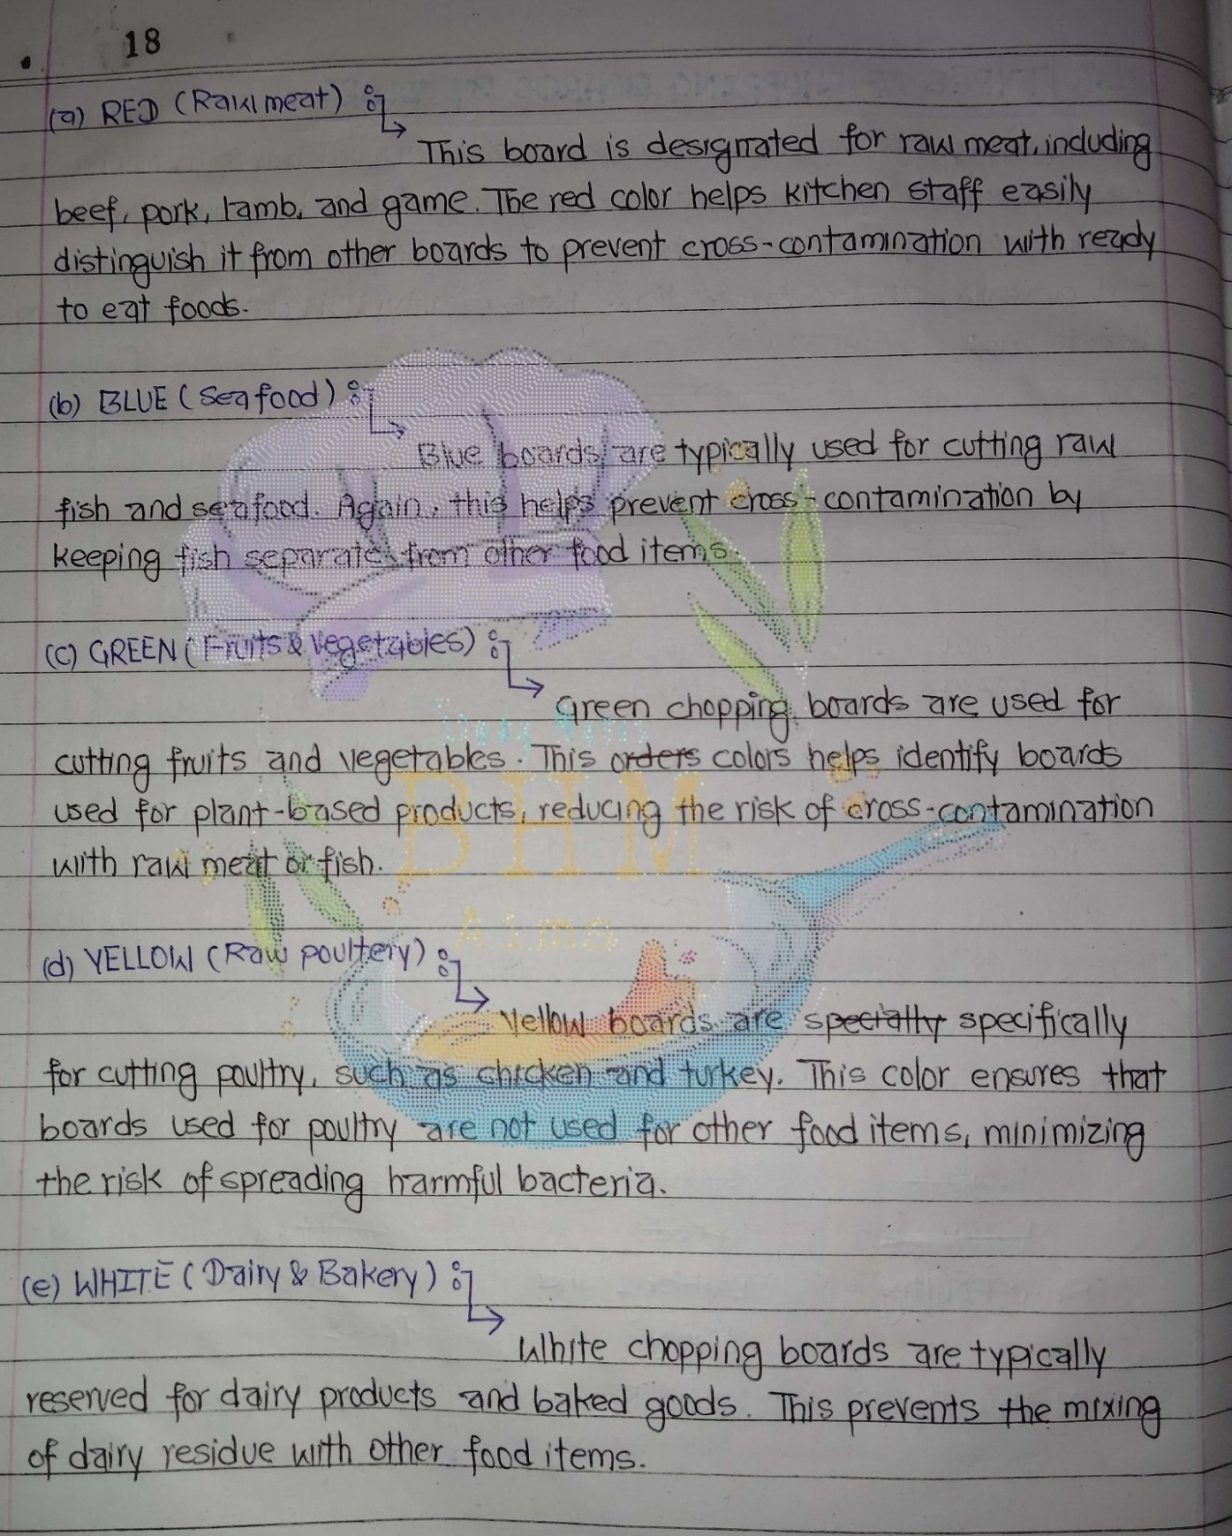 18
(a) RED (Raw meat) :
This board is designated for raw meat, including
beef, pork, lamb, and game. The red color helps kitchen staff easily
distinguish it from other boards to prevent cross-contamination with ready
to eat foods.
(b) BLUE (Seafood) :
Blue boards are typically used for cutting raw
fish and seafood. Again, this helps prevent cross-contamination by
keeping fish separate from other food items.
(c) GREEN (Fruits & Vegetables) :
Green chopping boards are used for
cutting fruits and vegetables. This orders colors helps identify boards
used for plant-based products, reducing the risk of cross-contamination
with raw meat or fish.
BHM
Aims
(d) YELLOW (Raw poultery) :
Yellow boards are specialty specifically
for cutting poultry, such as chicken and turkey. This color ensures that
boards used for poultry are not used for other food items, minimizing
the risk of spreading harmful bacteria.
(e) WHITE (Dairy & Bakery) :
White chopping boards are typically
reserved for dairy products and baked goods. This prevents the mixing
of dairy residue with other food items.